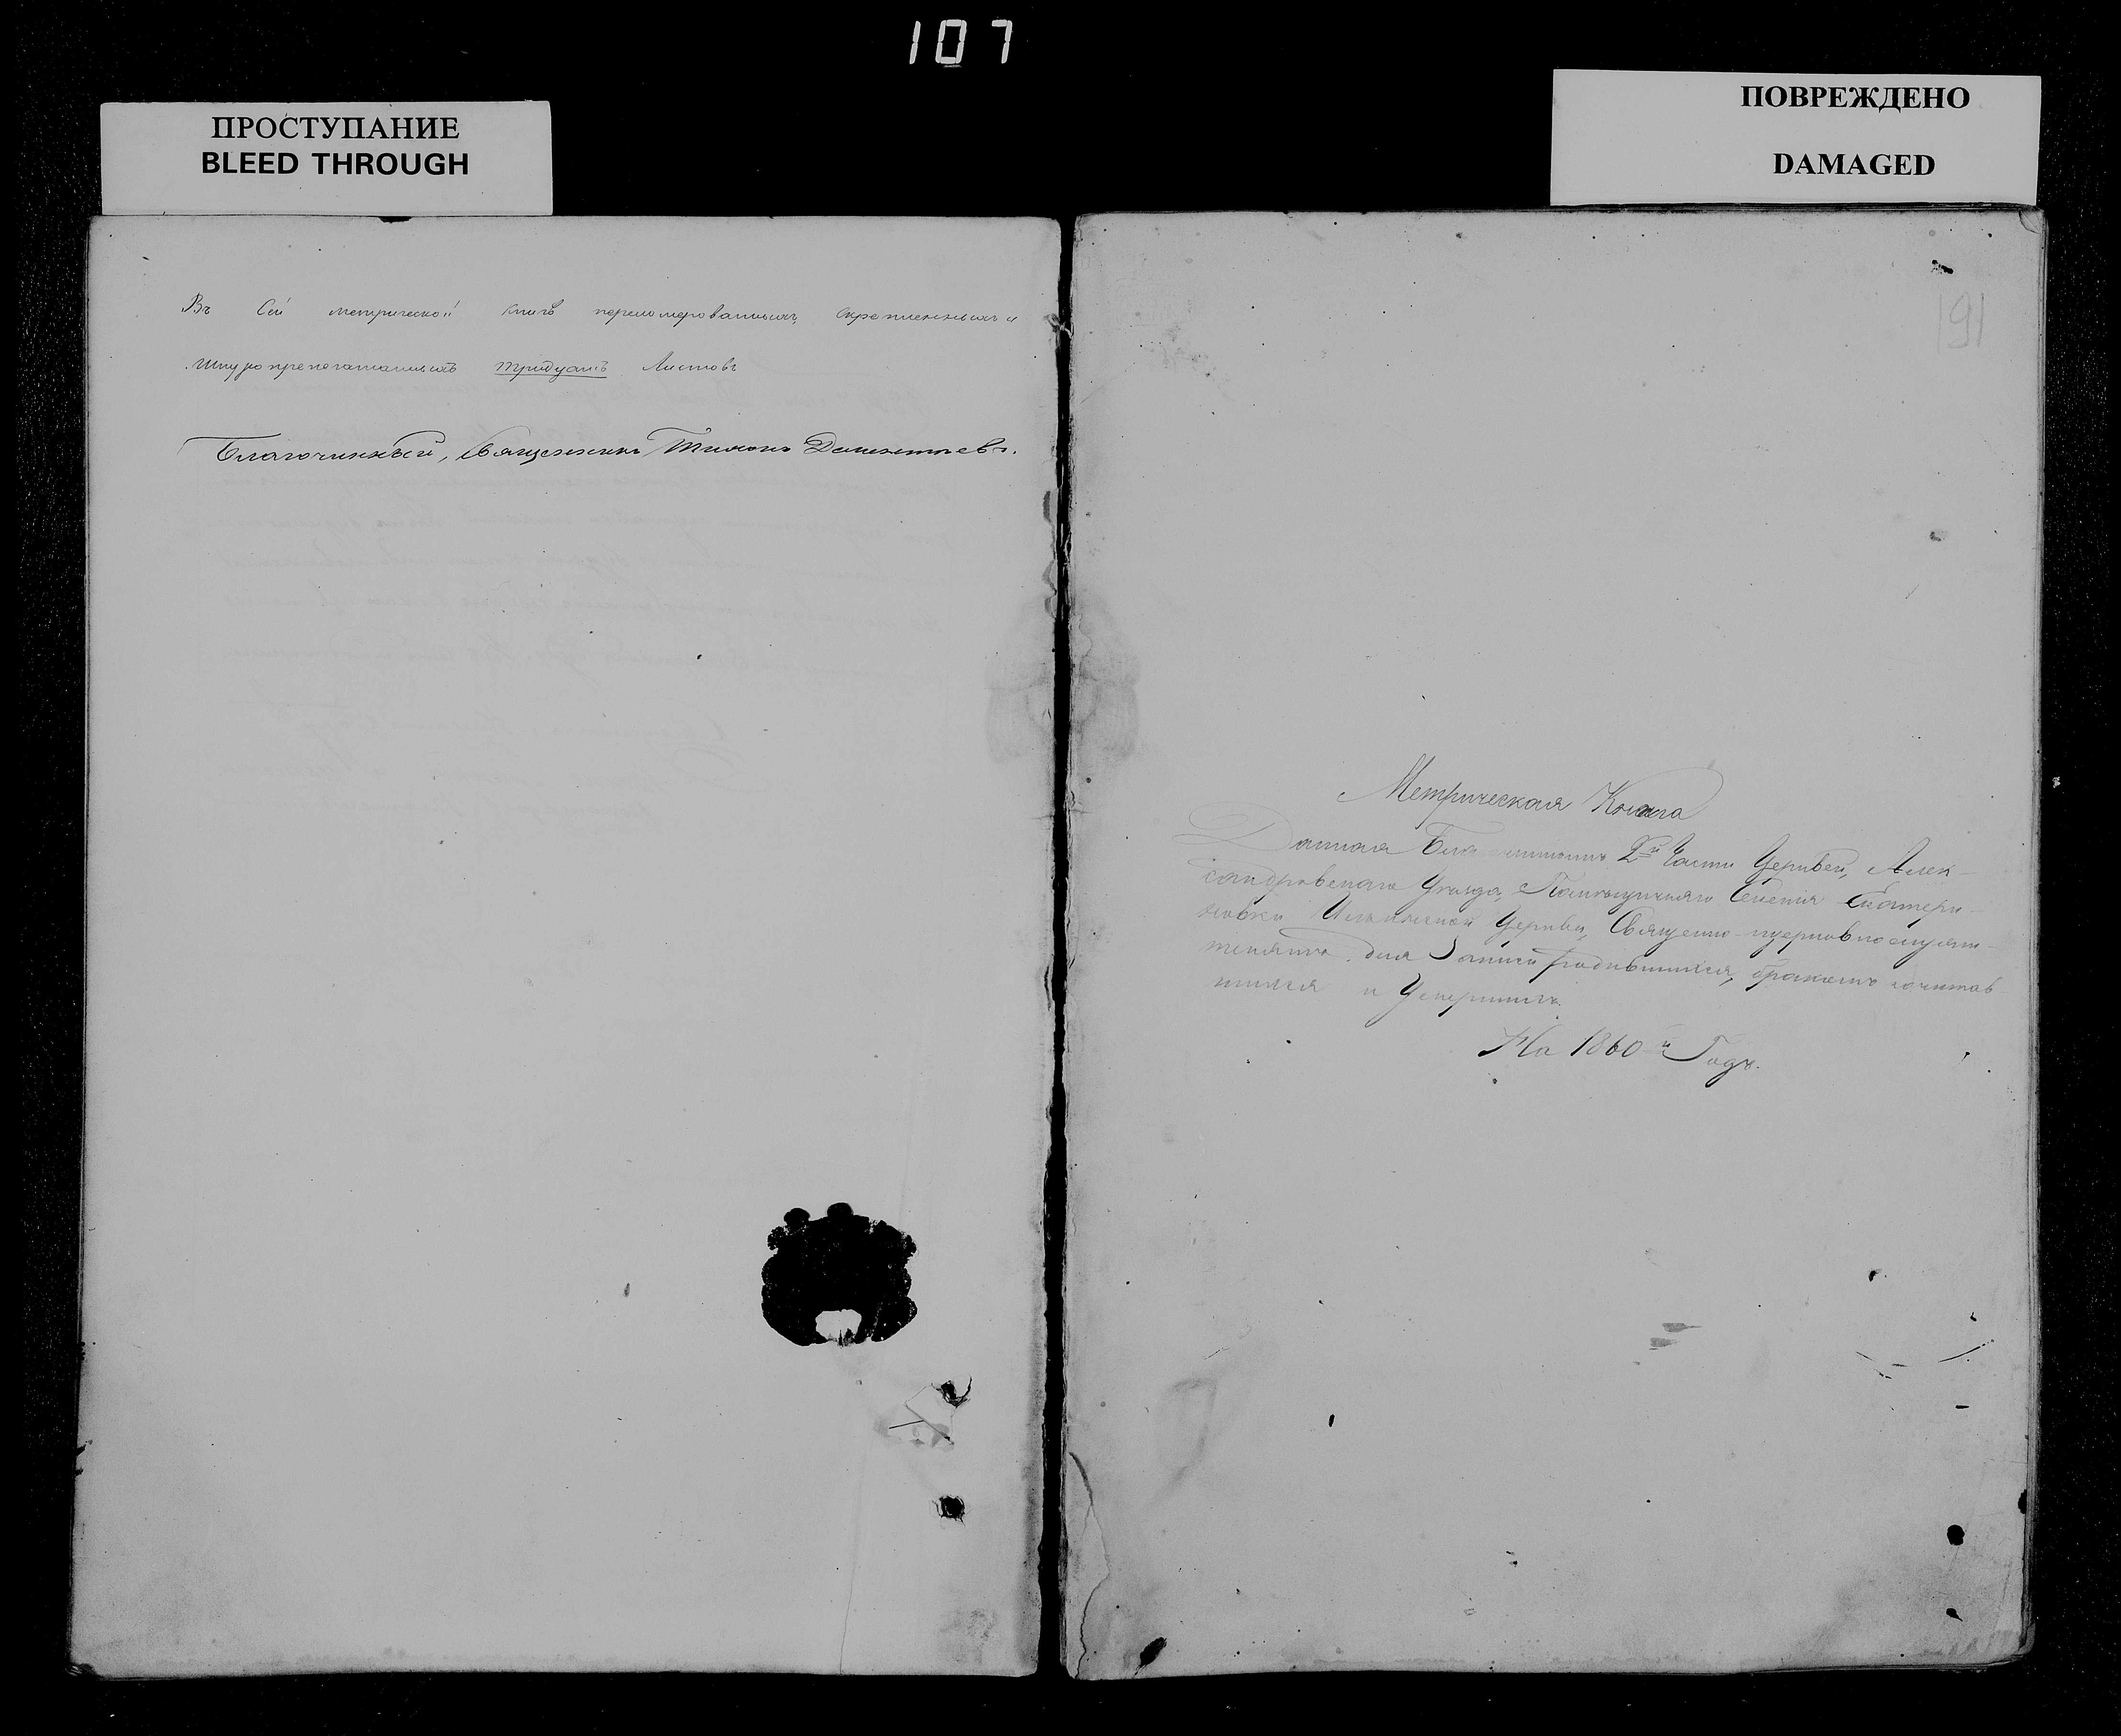 107
ПРОСТУПАНИЕ
BLEED THROUGH
ПОВРЕЖДЕНО
DAMAGED
Въ Сей метрической книгѣ перенумерованныхъ, скрепленныхъ и
шнуропрепечатанныхъ тридцать Листовъ
Благочинный, Священникъ Тимонъ Дементьевъ.
191
Метрическая Книга
Данная Благочиннымъ 2й Части Церквей, Алек-
сандровскаго Уѣзда, Селенія Екатери-
новки Церкви, Священно-церковнослужи-
телямъ для Записи родившихся, бракомъ сочетав-
шихся и Умершихъ
На 1860й Годъ.